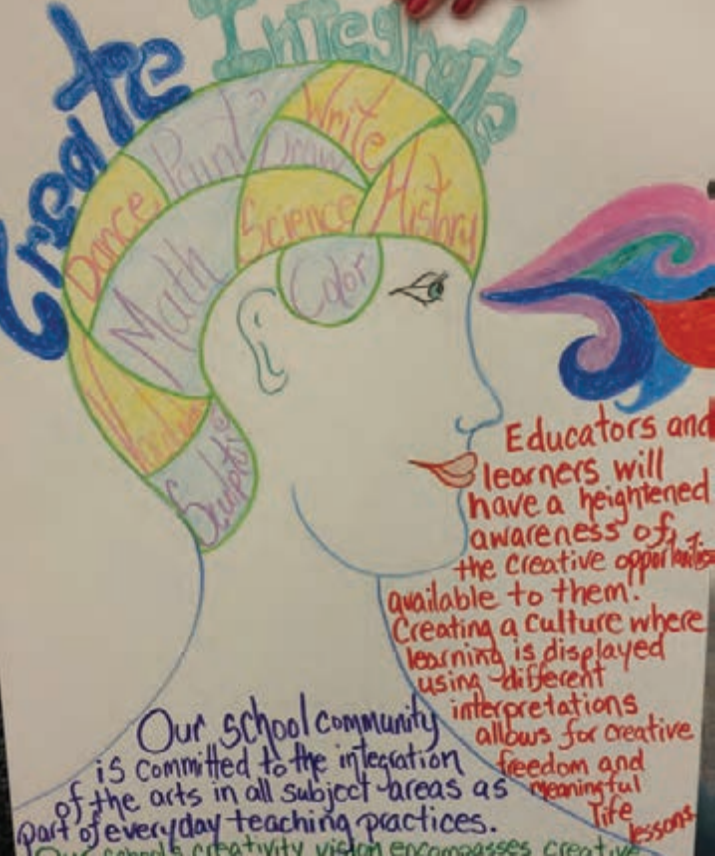 Create
Integrate
Paint
Write
Draw
Dance
Science
History
Math
Color
Educators and
learners will
have a heightened
awareness of
the creative opportunities
available to them.
Creating a culture where
learning is displayed
using different
interpretations
allows for creative
freedom and
meaningful
life
lessons.
Our school community
is committed to the integration
of the arts in all subject-areas as
part of everyday teaching practices.
Our school's creativity vision encompasses creative